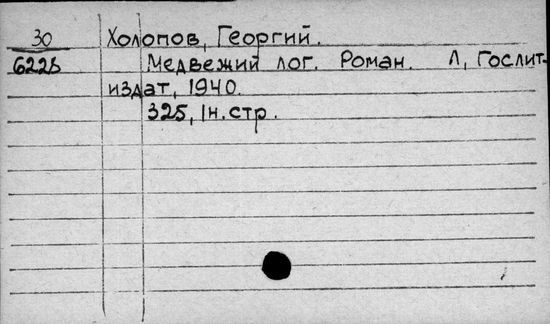 30 Холопов, Георгий.
Медвежий лог. Роман. Л, Гослит-
издат, 1940.
325, 1н. стр.